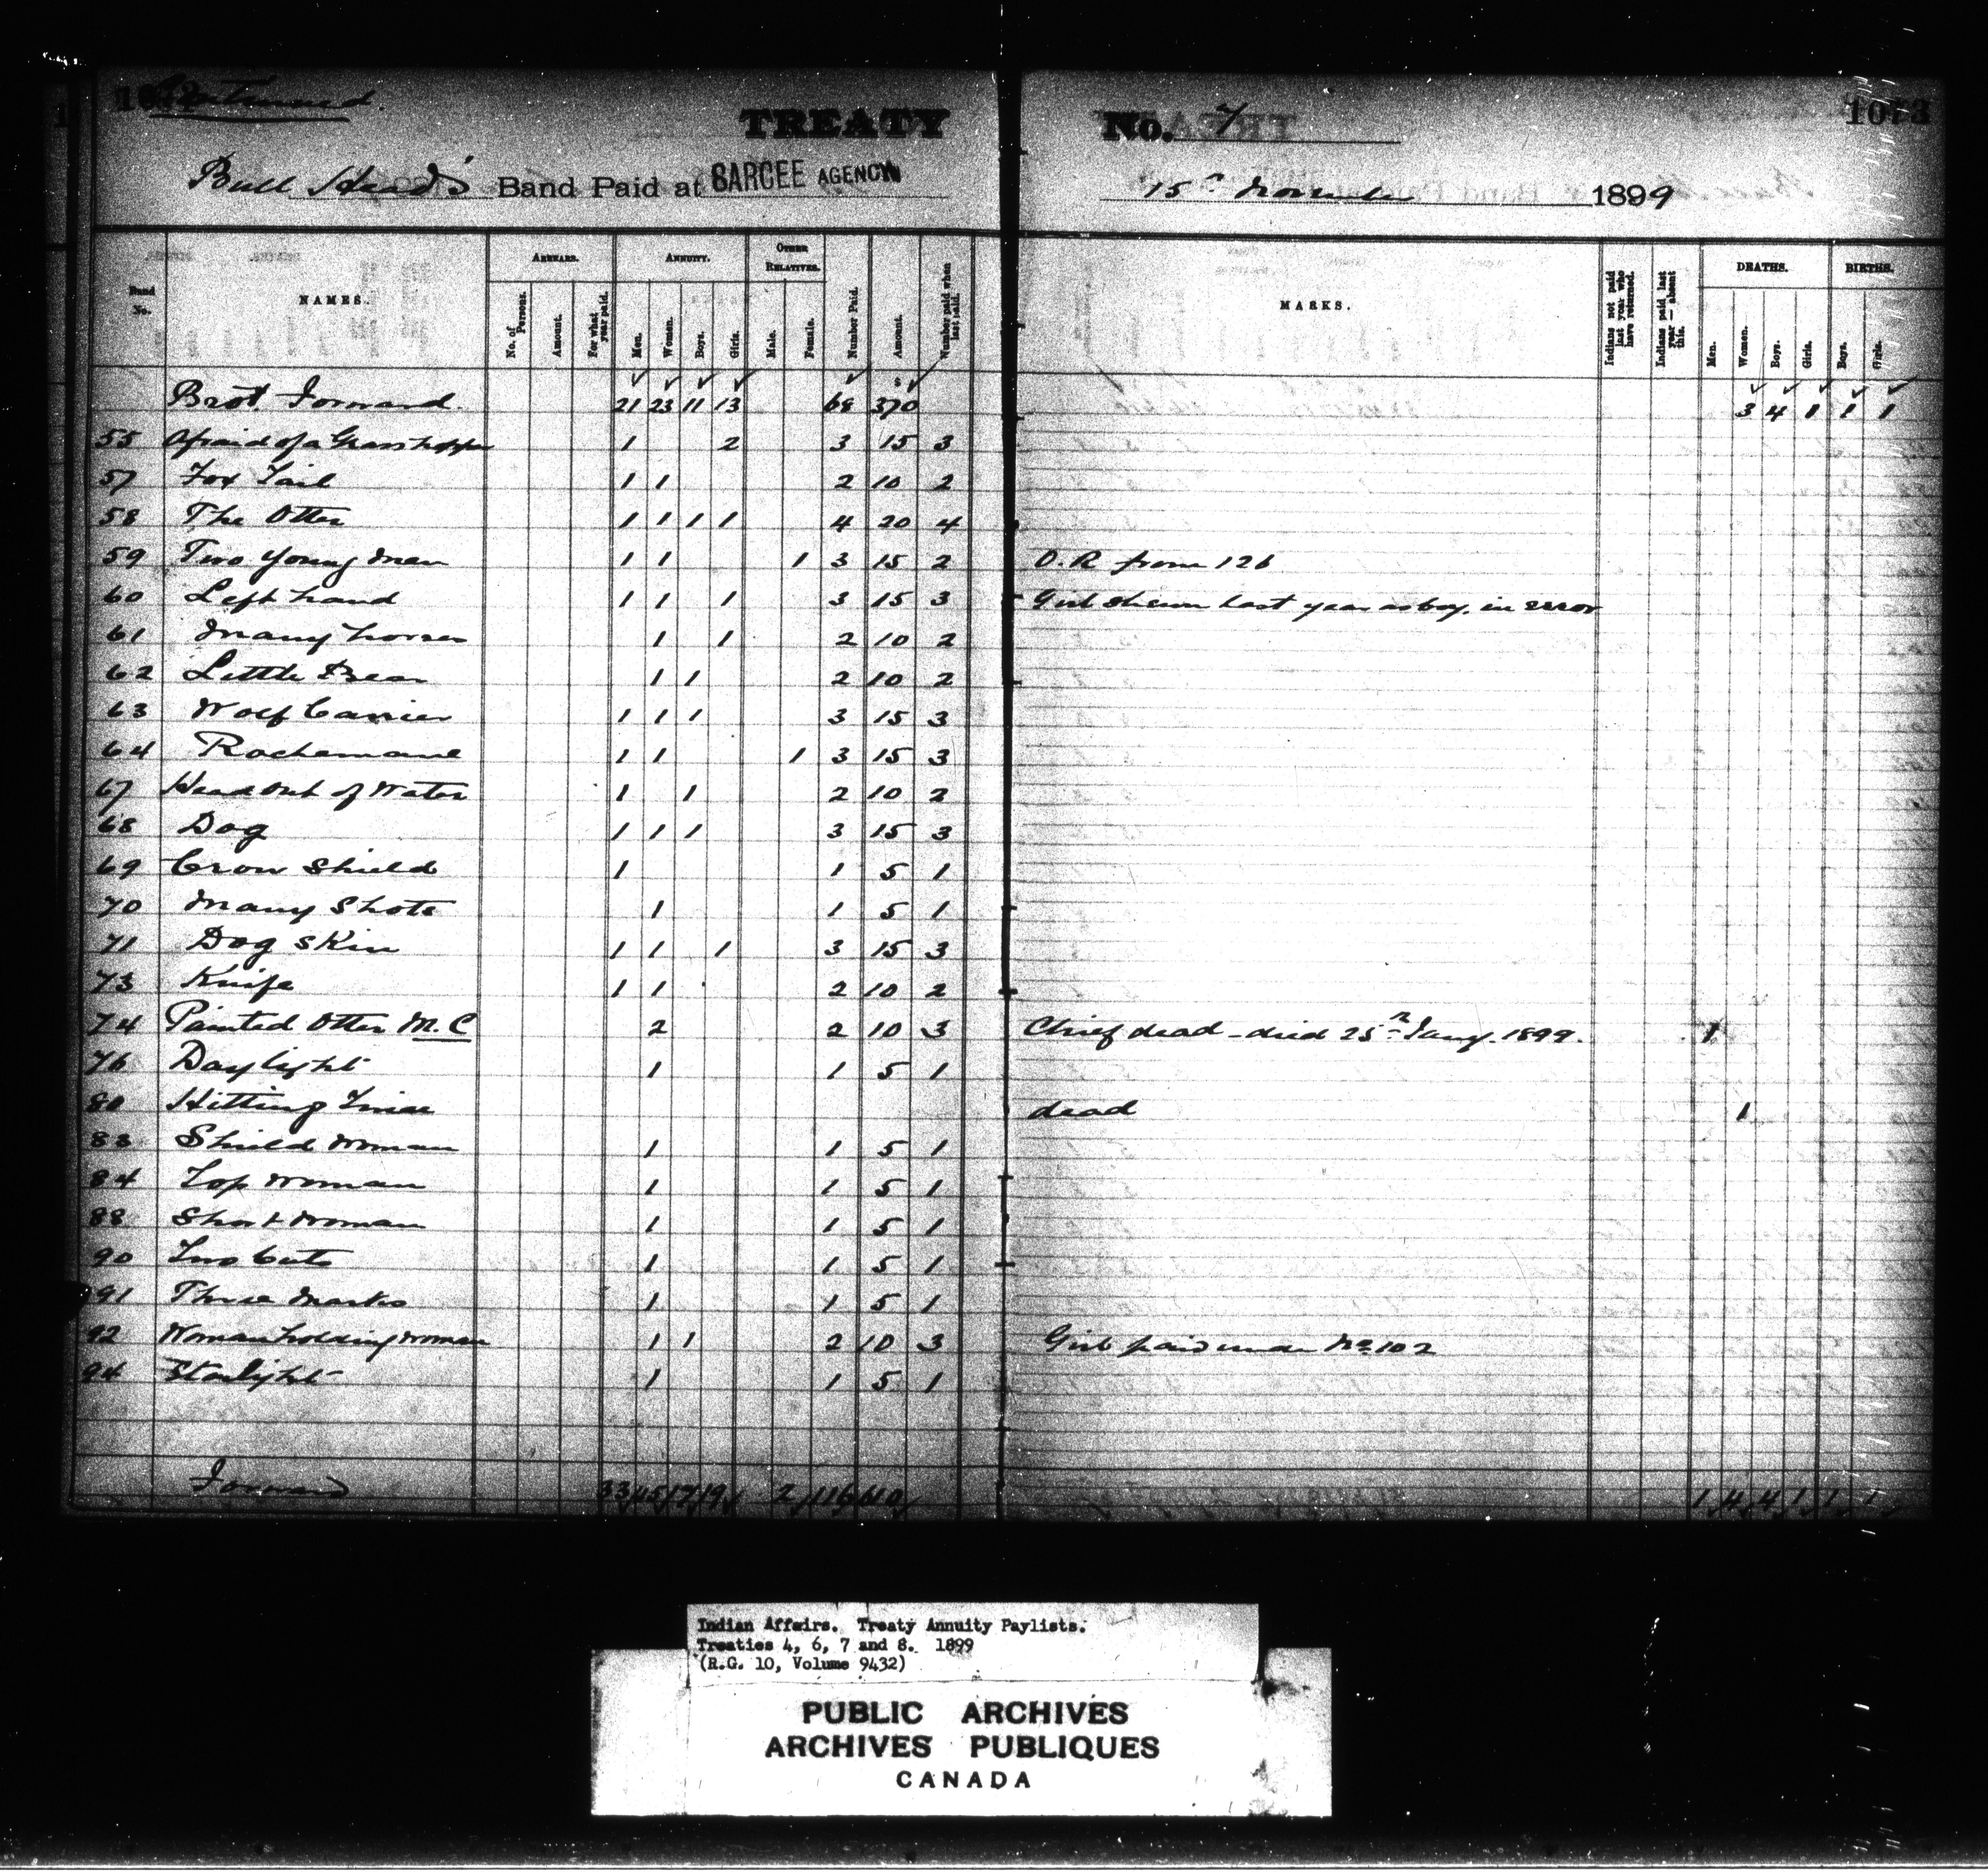 1072 Continued.
TREATY No. 7 1073
Bull Head's Band Paid at SARCEE AGENCY 15th November 1899
Band No.
NAMES.
ARREARS.
No. of Persons.
Amount.
For what year paid.
ANNUITY.
Men.
Women.
Boys.
Girls.
OTHER RELATIVES.
Male.
Female.
Number Paid.
Amount.
Number paid when last paid.
MARKS.
Indians not paid last year who have returned.
Indians paid last year — absent this.
DEATHS.
Men.
Women.
Boys.
Girls.
BIRTHS.
Boys.
Girls.
Brot. Forward. 21 23 11 13 68 370 3 4 1 1 1
55 Afraid of a Grasshopper 1 2 3 15 3
57 Fox Tail 1 1 2 10 2
58 The Otter 1 1 1 1 4 20 4
59 Two Young Men 1 1 1 3 15 2 O.R from 126
60 Left hand 1 1 1 3 15 3 Girl shewn last year as boy, in error
61 Many horses 1 1 2 10 2
62 Little Bear 1 1 2 10 2
63 Wolf Carrier 1 1 1 3 15 3
64 Rochemane 1 1 1 3 15 3
67 Head out of Water 1 1 2 10 2
68 Dog 1 1 1 3 15 3
69 Crow Shield 1 1 5 1
70 Many Shots 1 1 5 1
71 Dog Skin 1 1 1 3 15 3
73 Knife 1 1 2 10 2
74 Painted Otter M.C 2 2 10 3 Chief dead - died 25th Jany. 1899. 1
76 Daylight 1 1 5 1
80 Hitting dead 1
83 Shield Woman 1 1 5 1
84 Top Woman 1 1 5 1
88 Short Woman 1 1 5 1
90 Two Cuts 1 1 5 1
91 Three Marks 1 1 5 1
92 Woman holding woman 1 1 2 10 3 Girl paid under No 102
94 Starlight 1 1 5 1
Forward 33 45 17 19 2 116 610 1 4 4 1 1 1
Indian Affairs. Treaty Annuity Paylists.
Treaties 4, 6, 7 and 8. 1899
(R.G. 10, Volume 9432)
PUBLIC ARCHIVES
ARCHIVES PUBLIQUES
CANADA